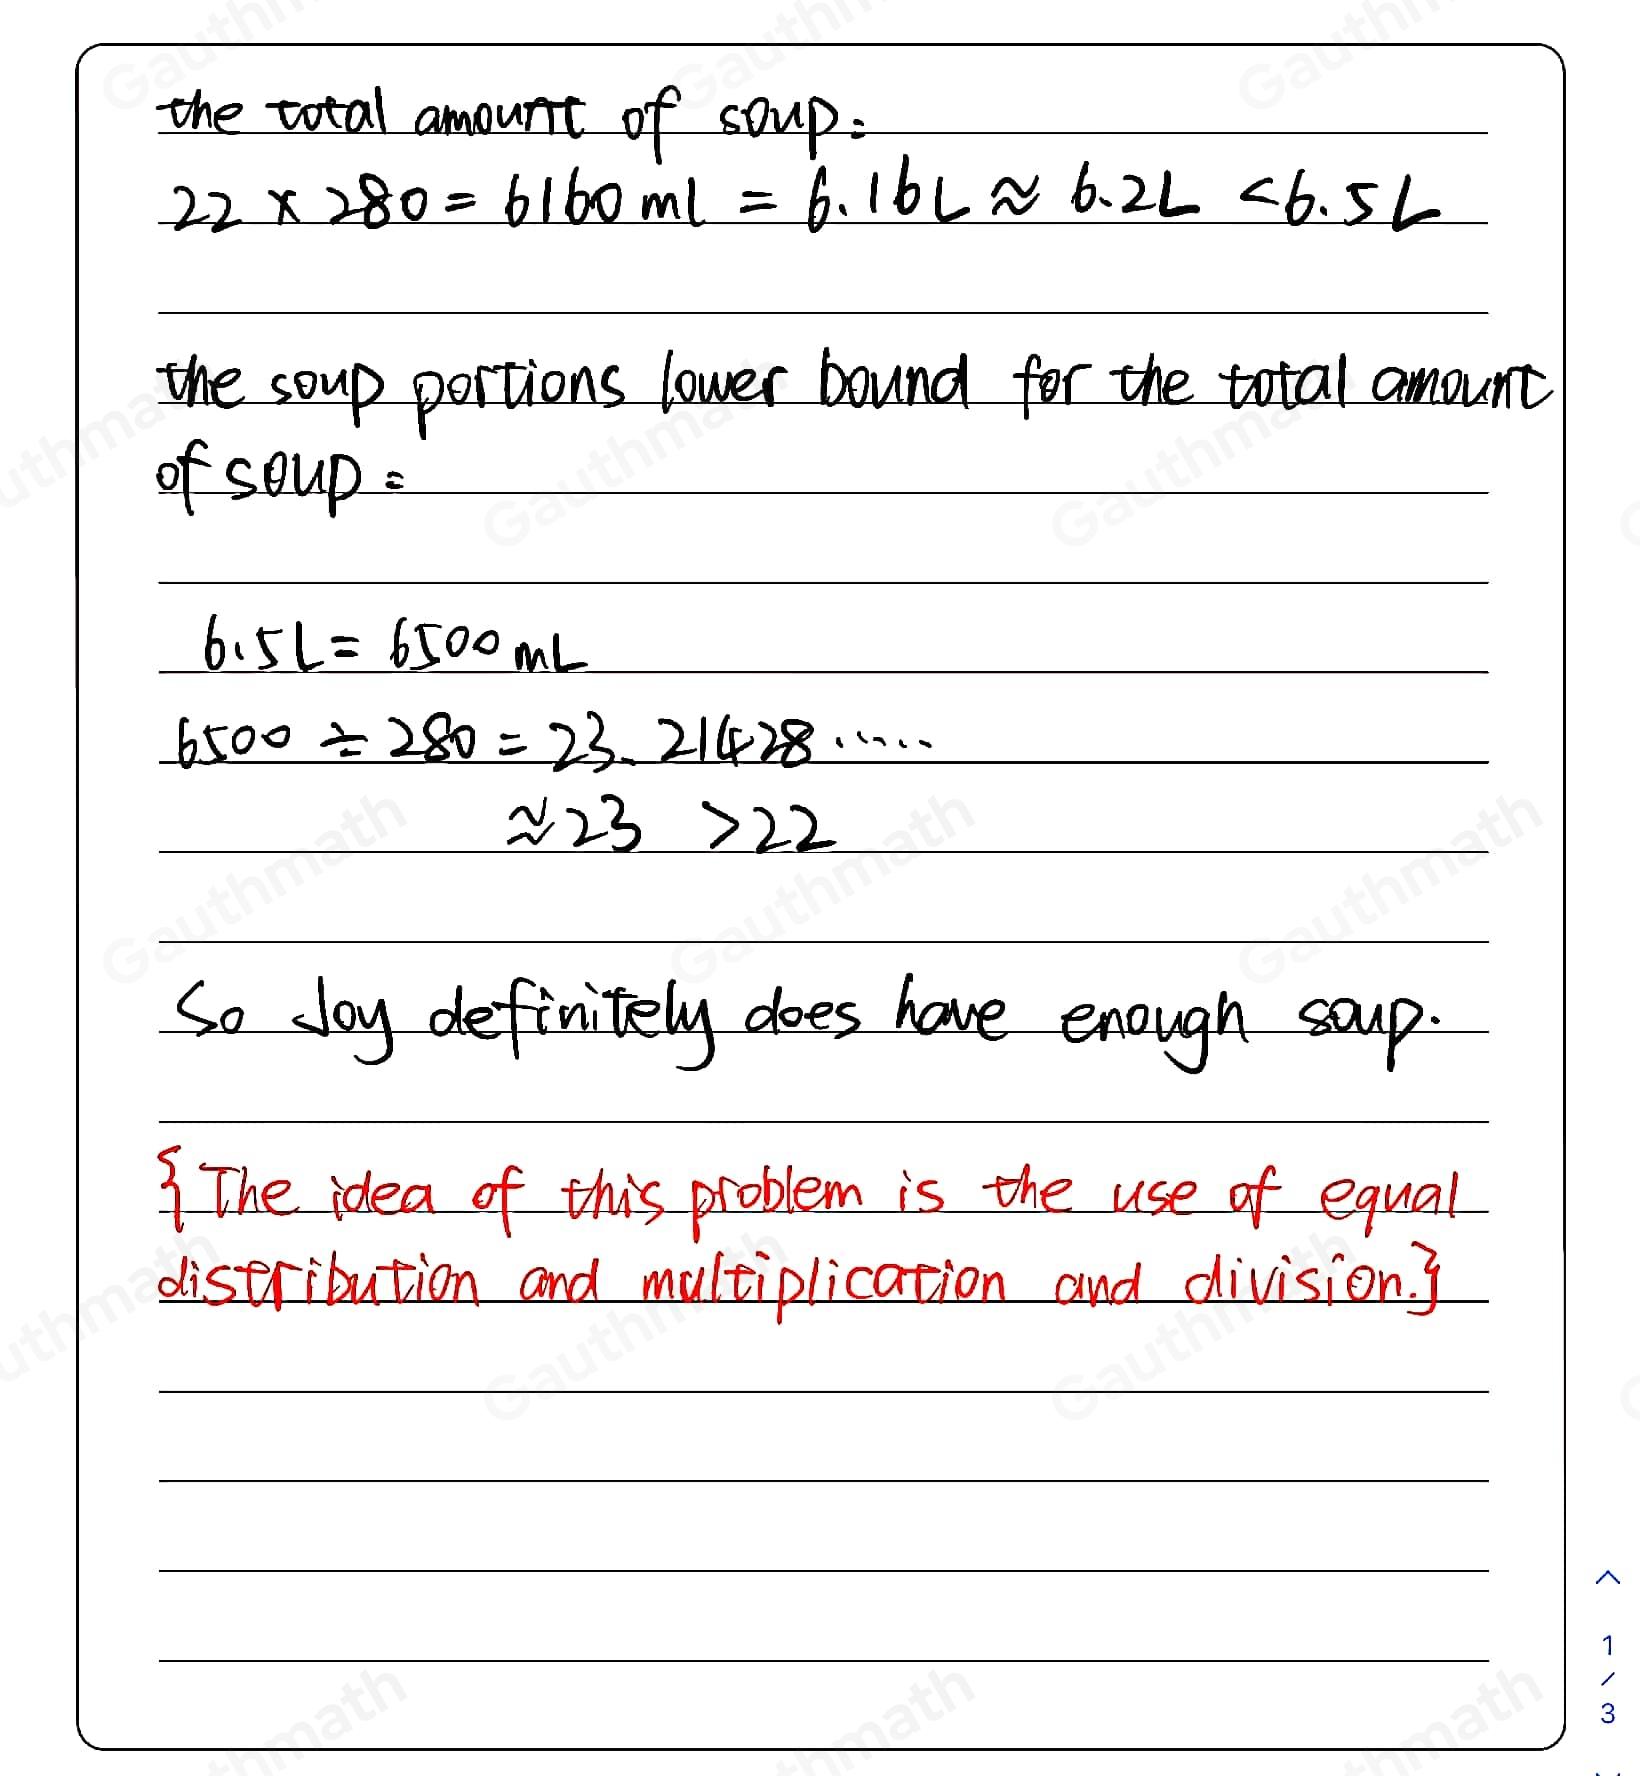 the total amount of soup:
22 × 280 = 6160 ml = 6.16L ≈ 6.2L < 6.5L
the soup portions lower bound for the total amount
of soup =
6.5L = 6500 mL
6500 ÷ 280 = 23.21428......
≈ 23 > 22
So Joy definitely does have enough soup.
{The idea of this problem is the use of equal
distribution and multiplication and division.}
1
/
3
Gauthmath